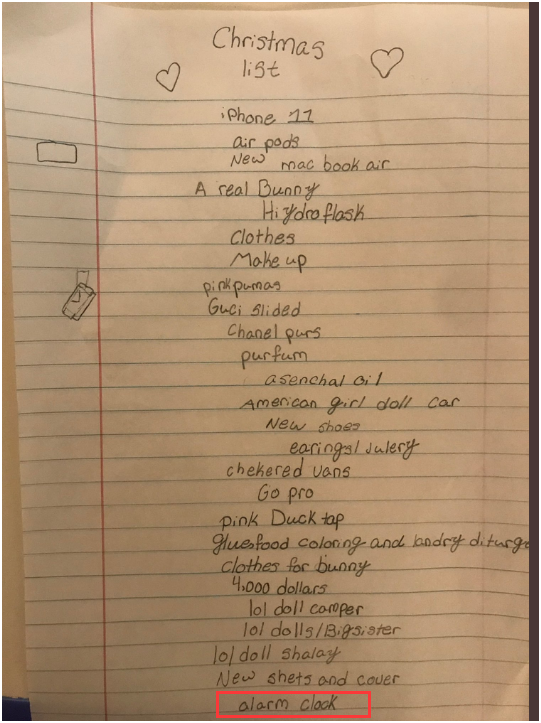 Christmas
list
iPhone 11
air pods
New mac book air
A real Bunny
Hydroflask
Clothes
Make up
pinkpumas
Guci slided
Chanel purs
purfum
asenchal oil
American girl doll car
New shoes
earings/Julery
chekered vans
Go pro
pink Duck tap
gluesfood coloring and landry diturge
Clothes for bunny
4,000 dollars
lol doll camper
lol dolls/Bigsister
lol doll shalay
New shets and cover
alarm clock